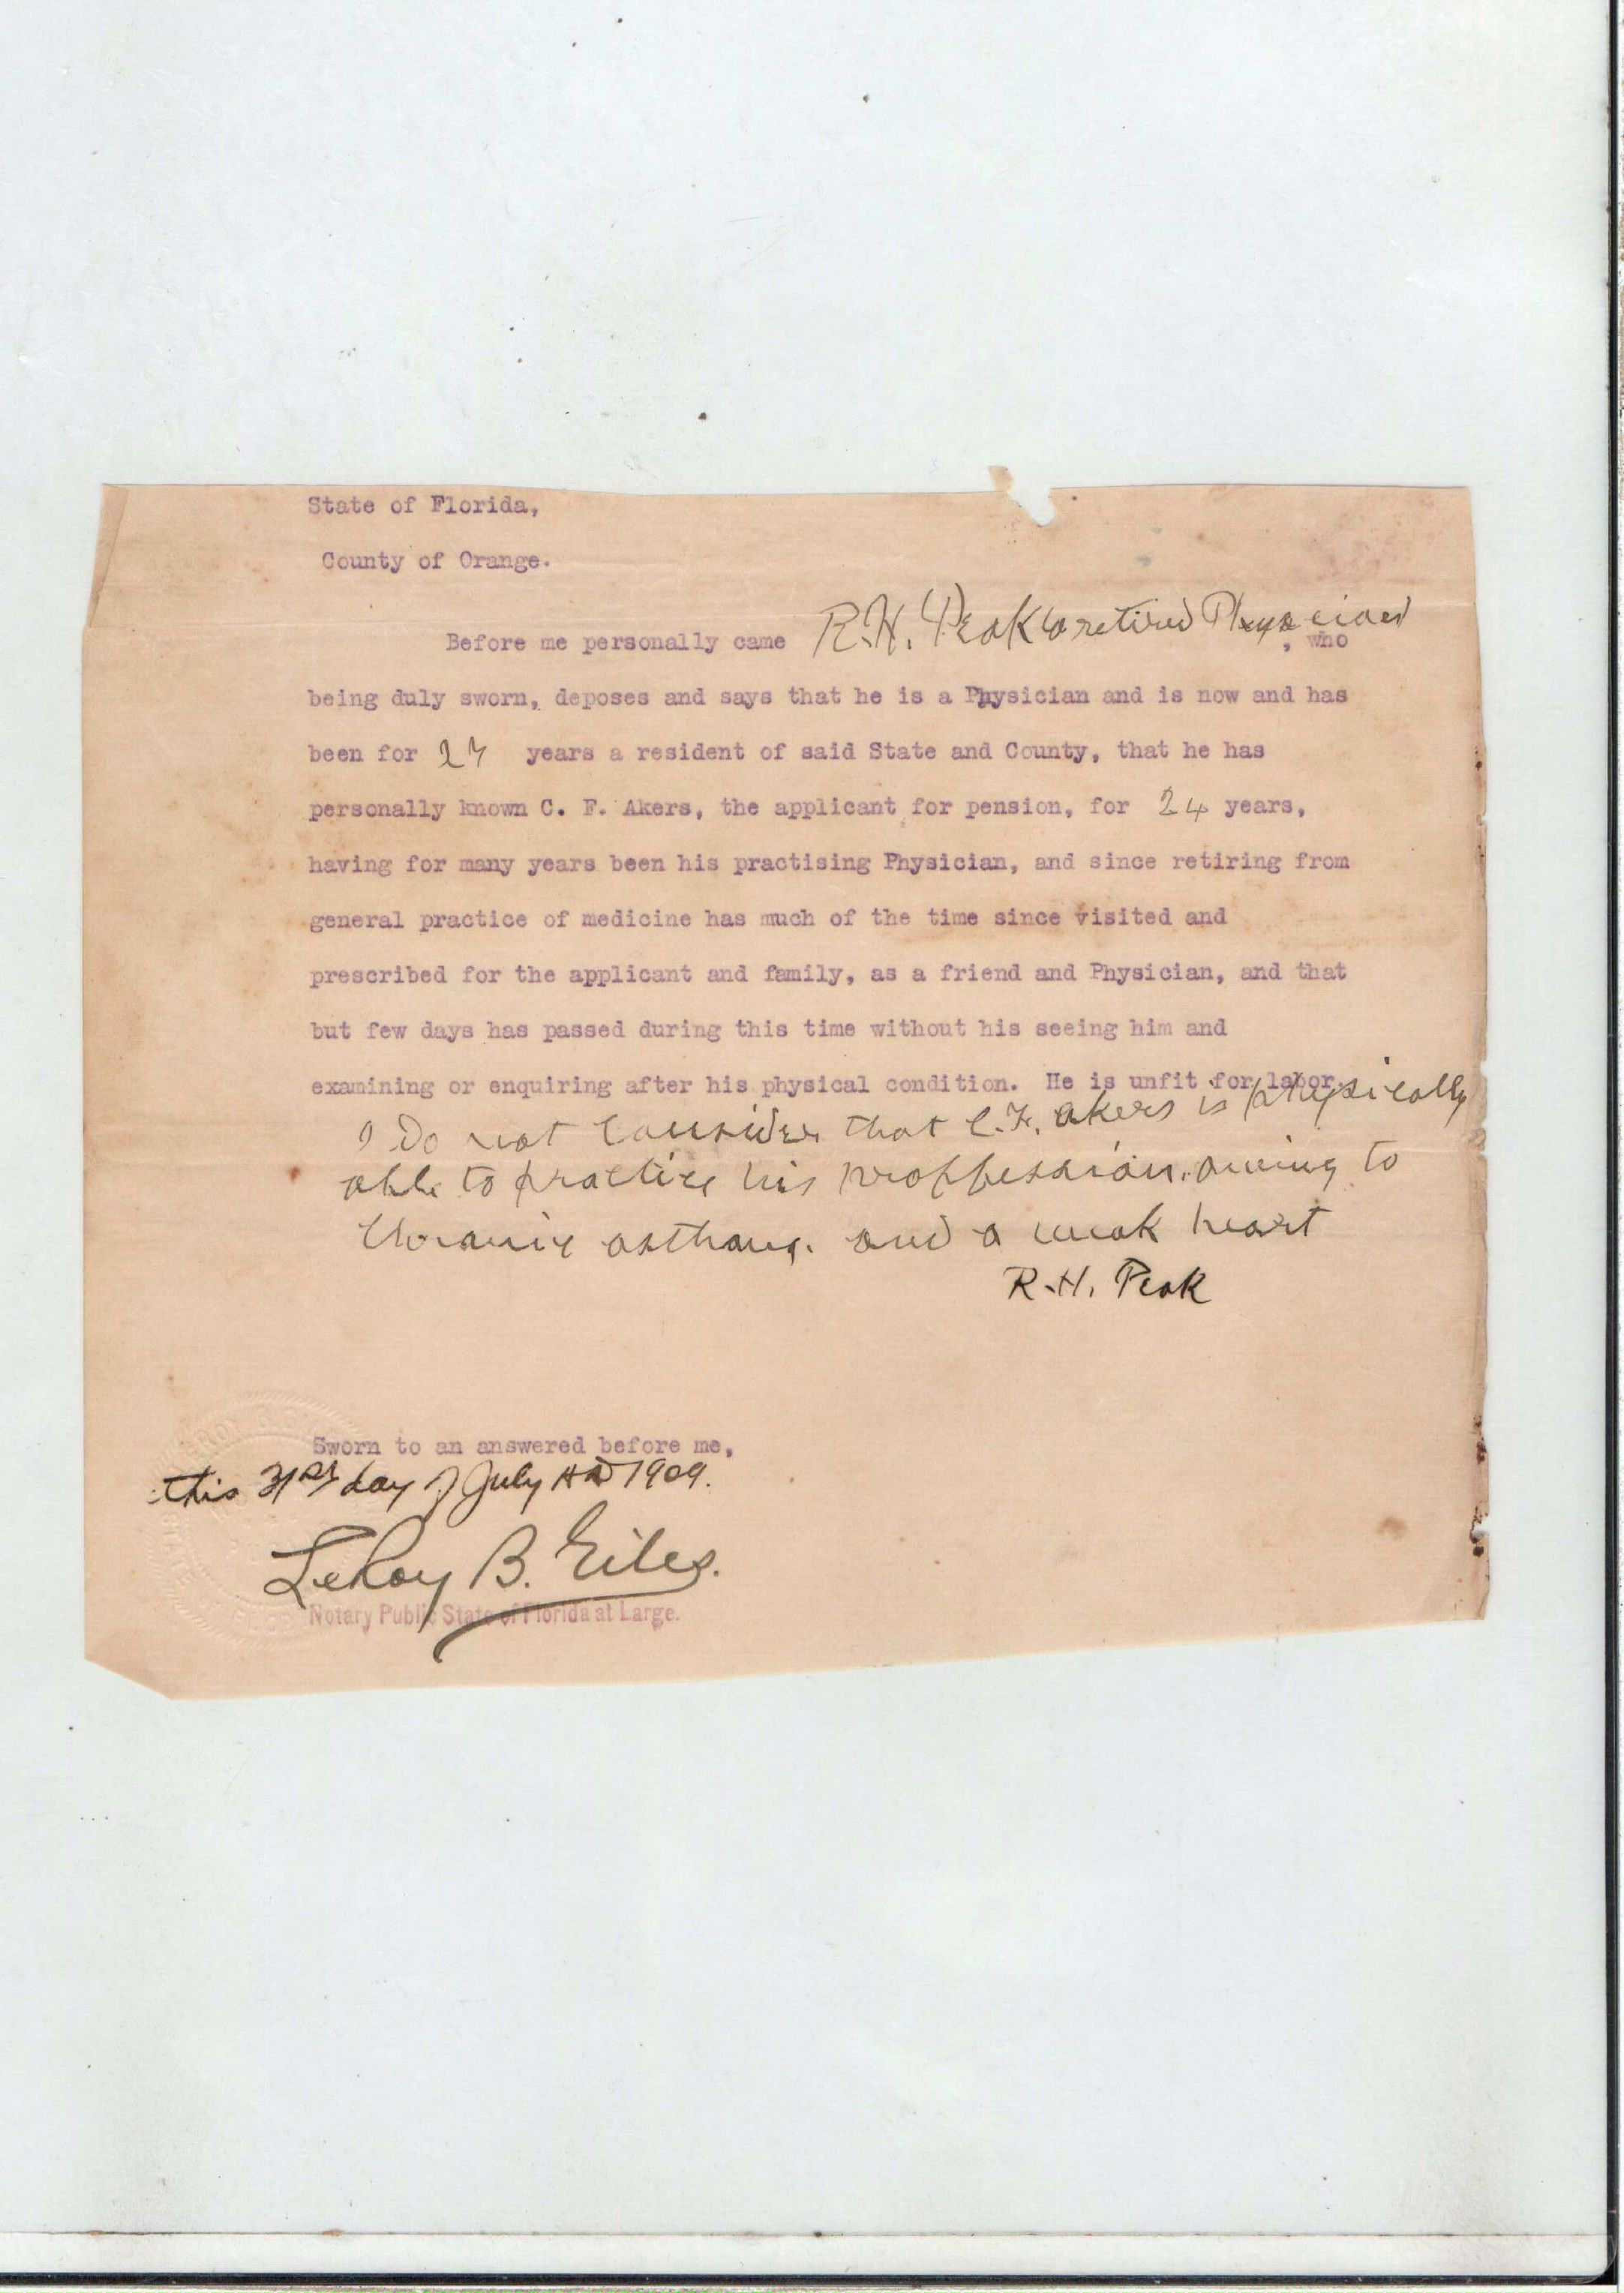 State of Florida,
County of Orange.
Before me personally came R.H. Peak a retired Physician, who
being duly sworn, deposes and says that he is a Physician and is now and has
been for 27 years a resident of said State and County, that he has
personally known C. F. Akers, the applicant for pension, for 24 years,
having for many years been his practising Physician, and since retiring from
general practice of medicine has much of the time since visited and
prescribed for the applicant and family, as a friend and Physician, and that
but few days has passed during this time without his seeing him and
examining or enquiring after his physical condition. He is unfit for labor.
I Do not Consider that C. F. Akers is physically
able to practice his proffession. owing to
Chronic asthma. and a weak heart
R.H. Peak
Sworn to an answered before me,
this 31st day of July AD 1909.
LeRoy B. Giles.
Notary Public State of Florida at Large.